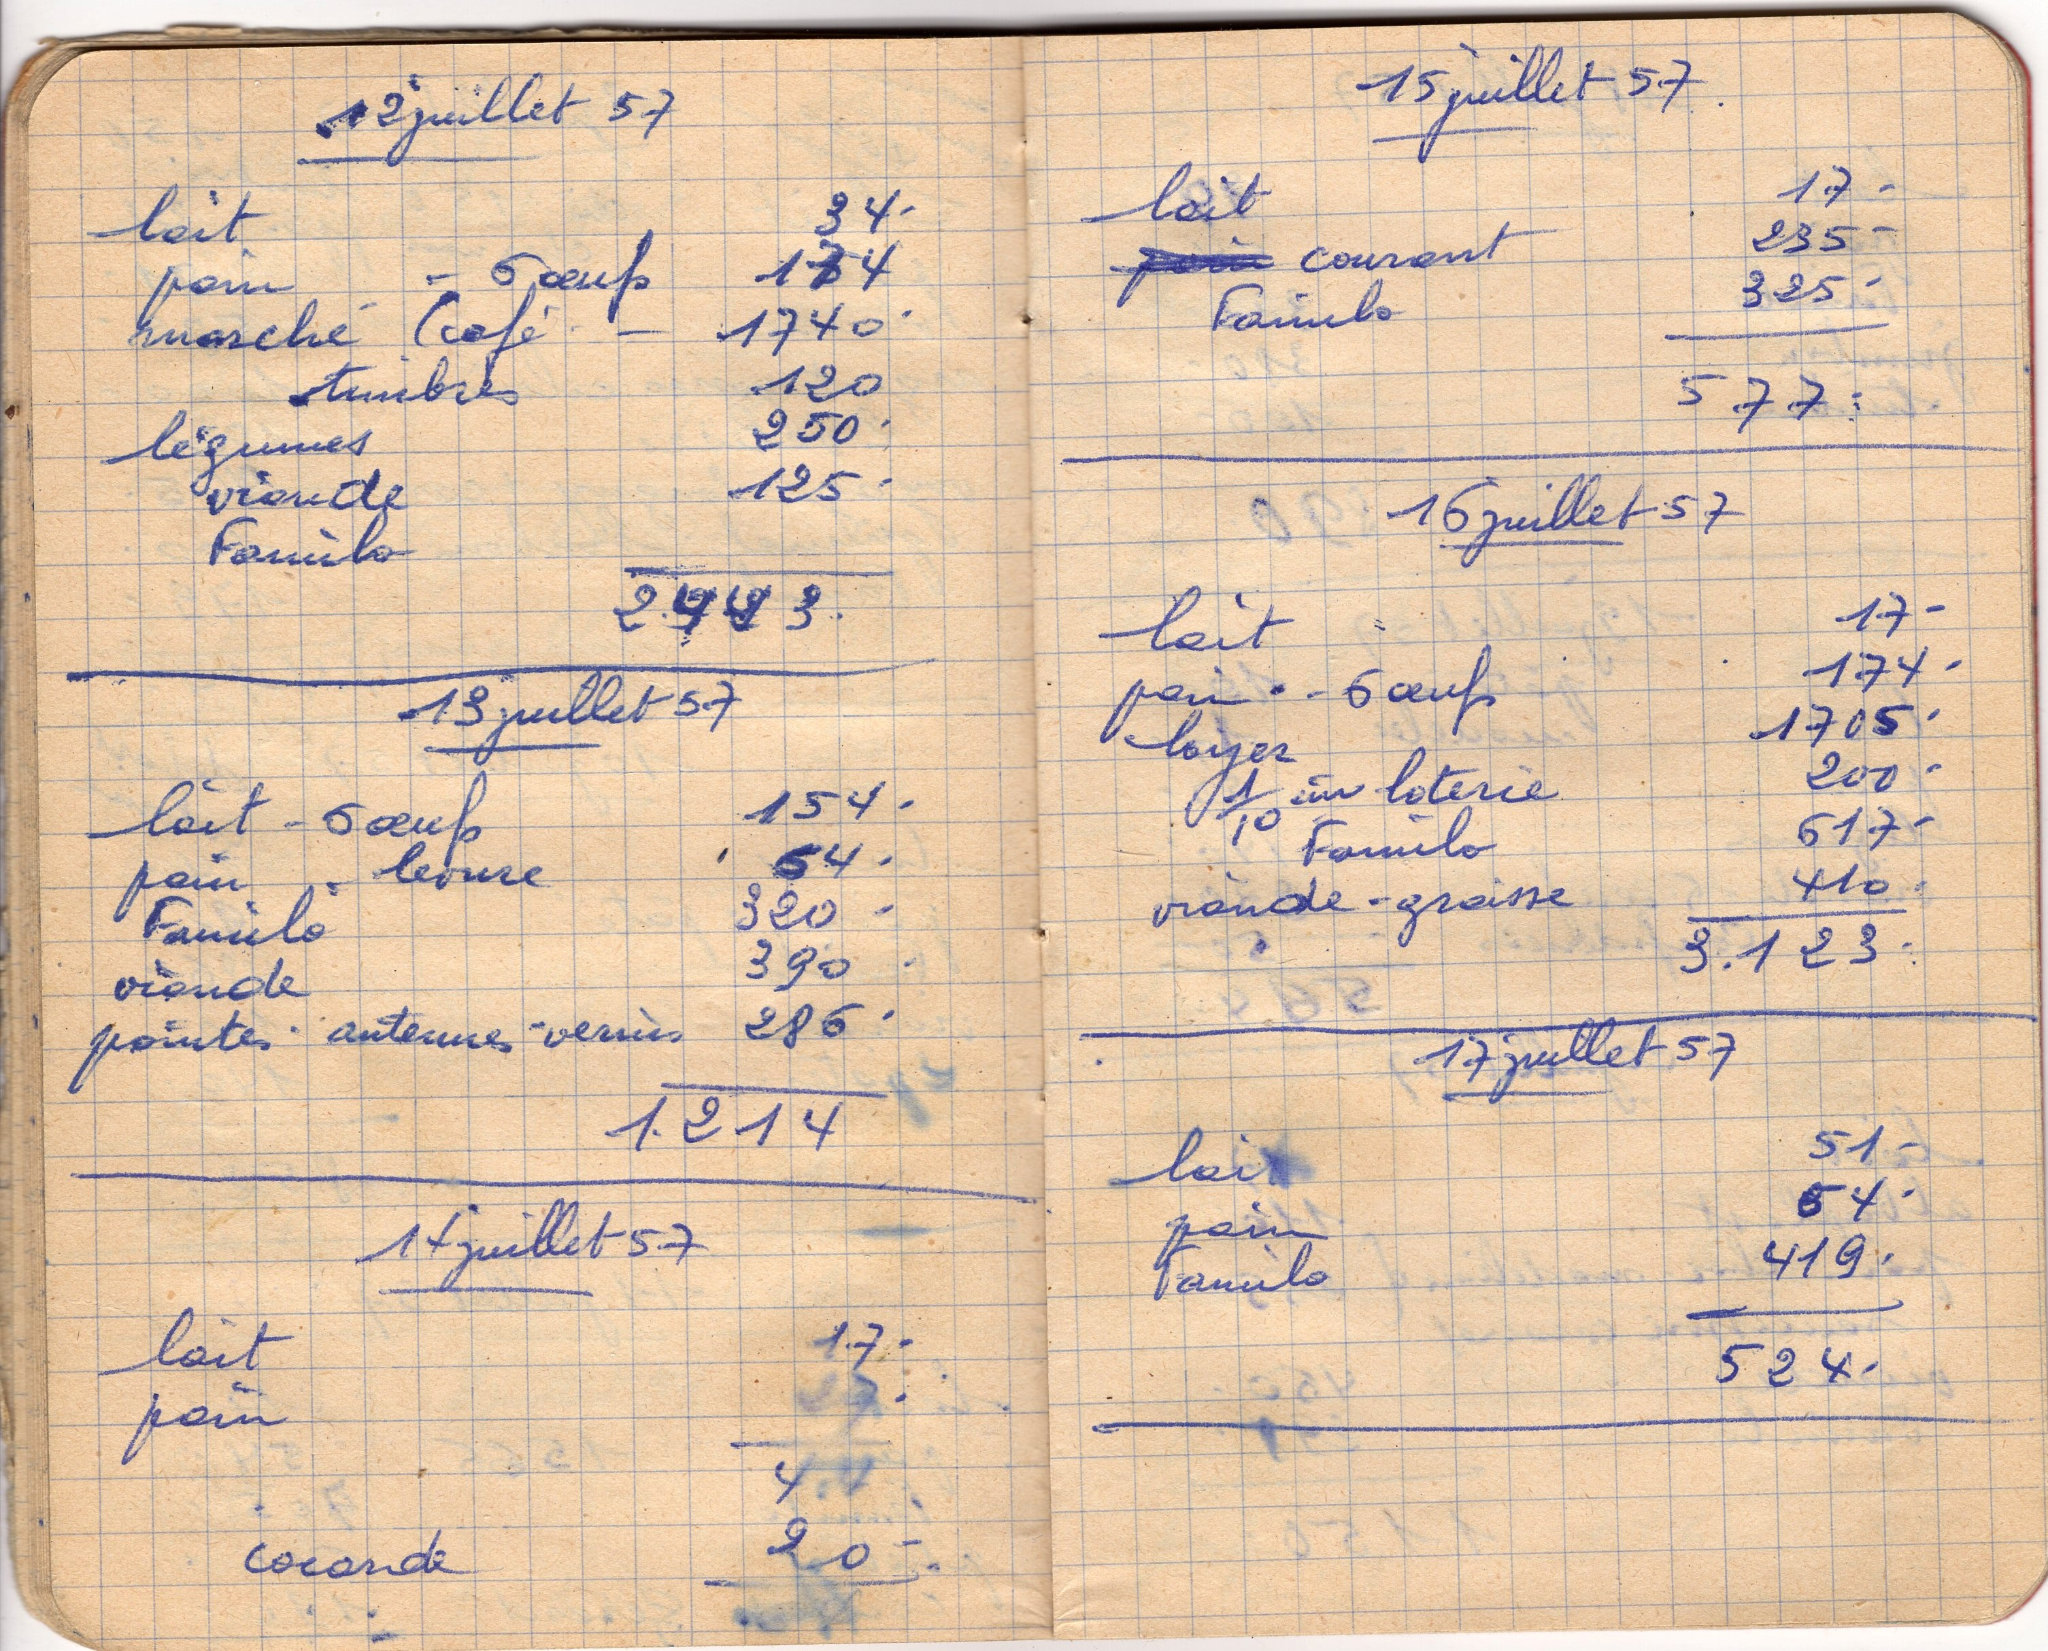 12 juillet 57
lait 34.
pain - 6 œufs 174
marché (café - 1740.
timbres 120
légumes 250.
viande 125.
Familo
2.443.
13 juillet 57
lait - 6 œufs 154.
pain - levure 64.
Familo 320 -
viande 390 .
pointes - antennes - vernis 286.
1.214
14 juillet 57
lait 17.-
pain
4
cocarde 20 -
15 juillet 57.
lait 17.-
courant 235 -
Familo 325.
577.
16 juillet 57
lait 17 -
pain - 6 œufs 174.
loyer 1705.
1/10 loterie 200.
Familo 617 -
viande - graisse 410.
3.123.
17 juillet 57
lait 51 -
pain 54.
Familo 419.
524.